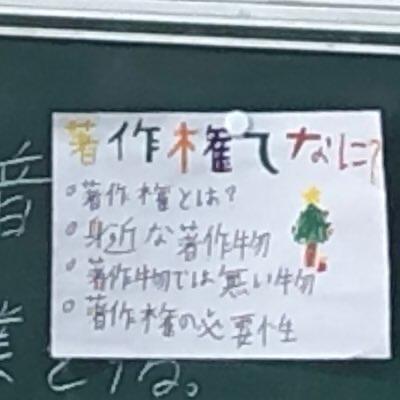 著作権てなに?
著作権とは?
身近な著作物
著作物では無い物
著作権の必要性